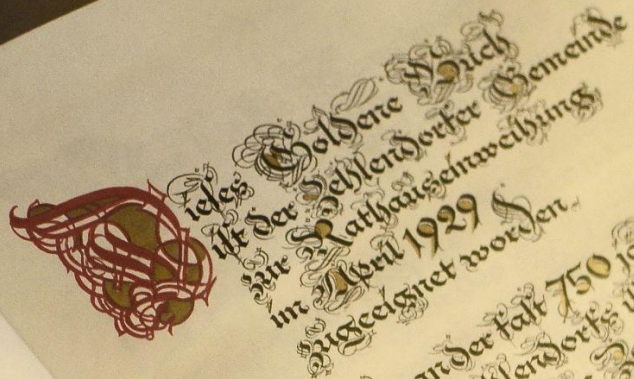 Dieses Goldene Buch
ist der Zehlendorfer Gemeinde
zur Rathauseinweihung
im April 1929
zugeeignet worden.
an der fast 750